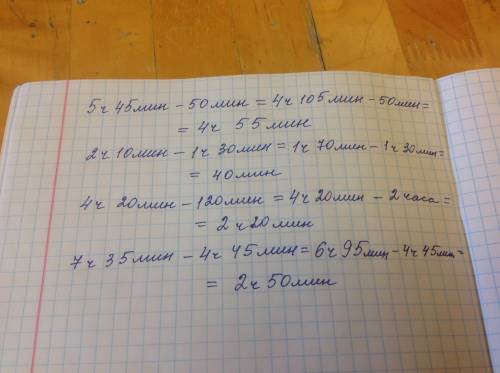 5ч 45мин - 50мин = 4ч 105мин - 50мин =
= 4ч 55мин
2ч 10мин - 1ч 30мин = 1ч 70мин - 1ч 30мин =
= 40мин
4ч 20мин - 120мин = 4ч 20мин - 2часа =
= 2ч 20мин
7ч 35мин - 4ч 45мин = 6ч 95мин - 4ч 45мин =
= 2ч 50мин